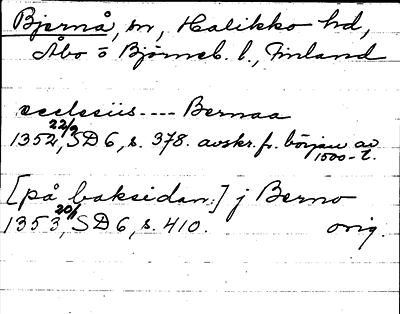 Bjernå, sn, Halikko hd,
Åbo o Björneb. l., Finland
ecclesiis---- Bernaa
1352 22/2, SD 6, s. 378. avskr. fr. början av 1500-t.
[på baksidan:] j Berno
1353 20/1, SD 6, s. 410. orig.